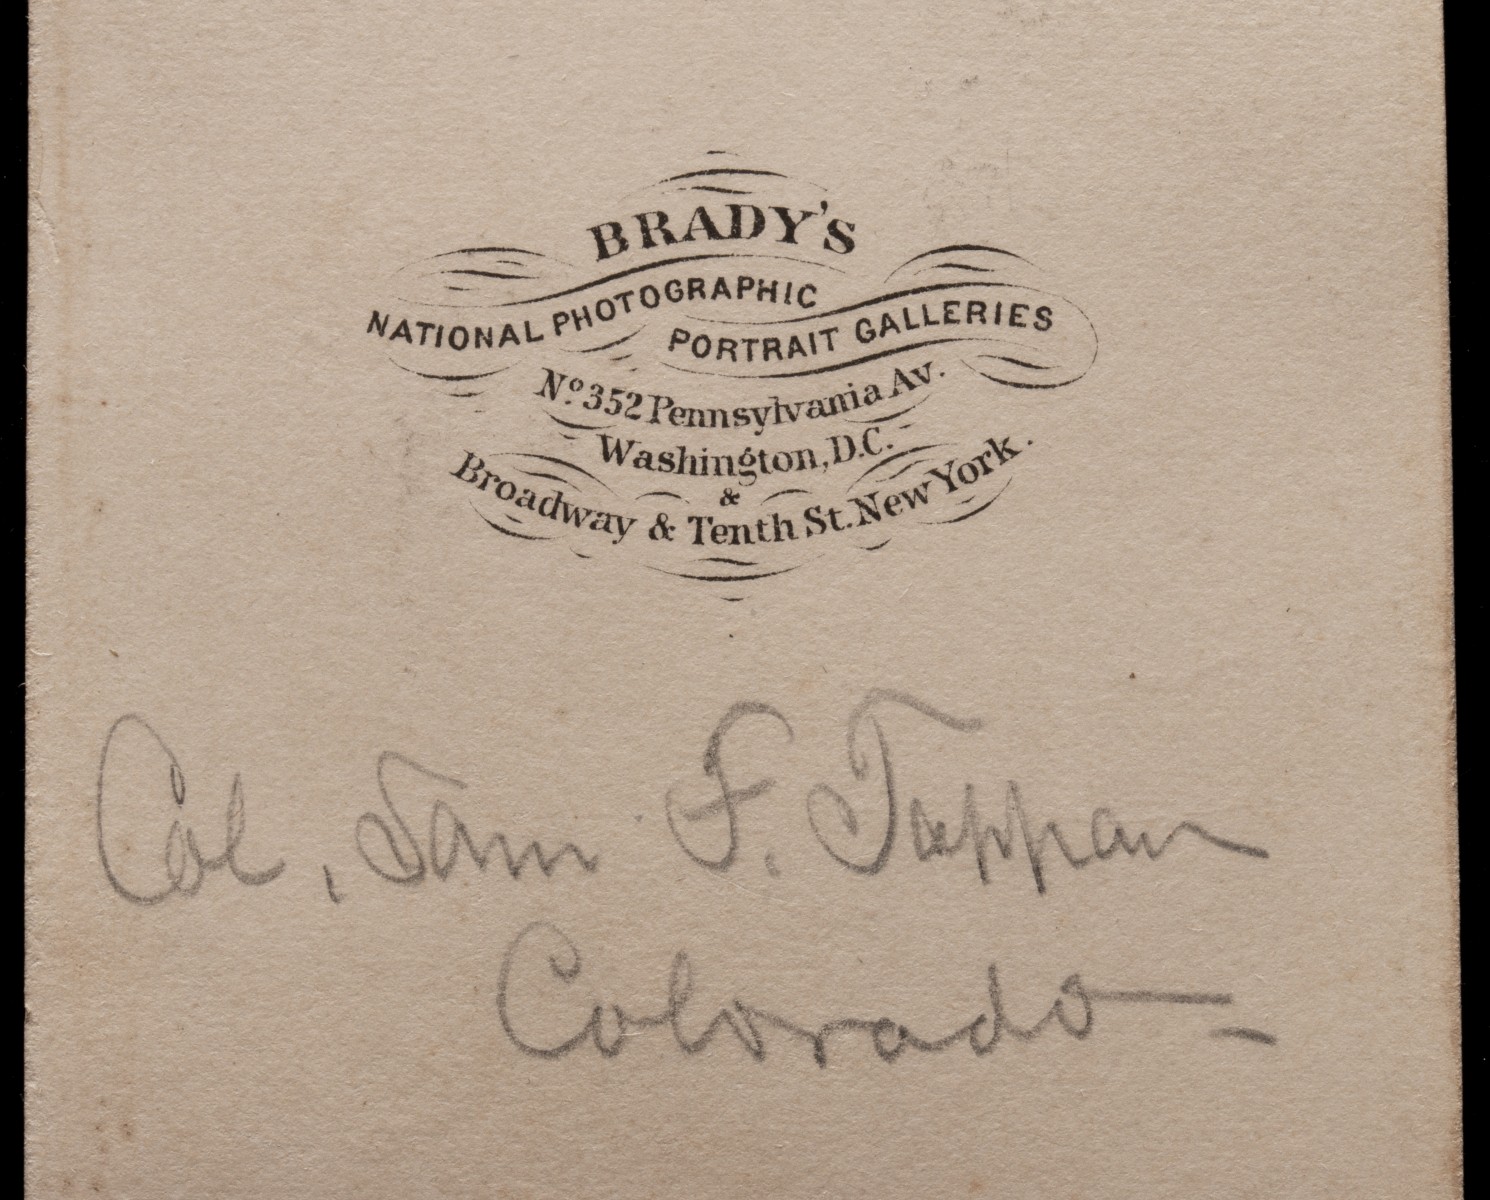 BRADY'S
NATIONAL PHOTOGRAPHIC
PORTRAIT GALLERIES
No. 352 Pennsylvania Av.
Washington, D.C.
&
Broadway & Tenth St. New York.
Col, Sam F. Tappan
Colorado